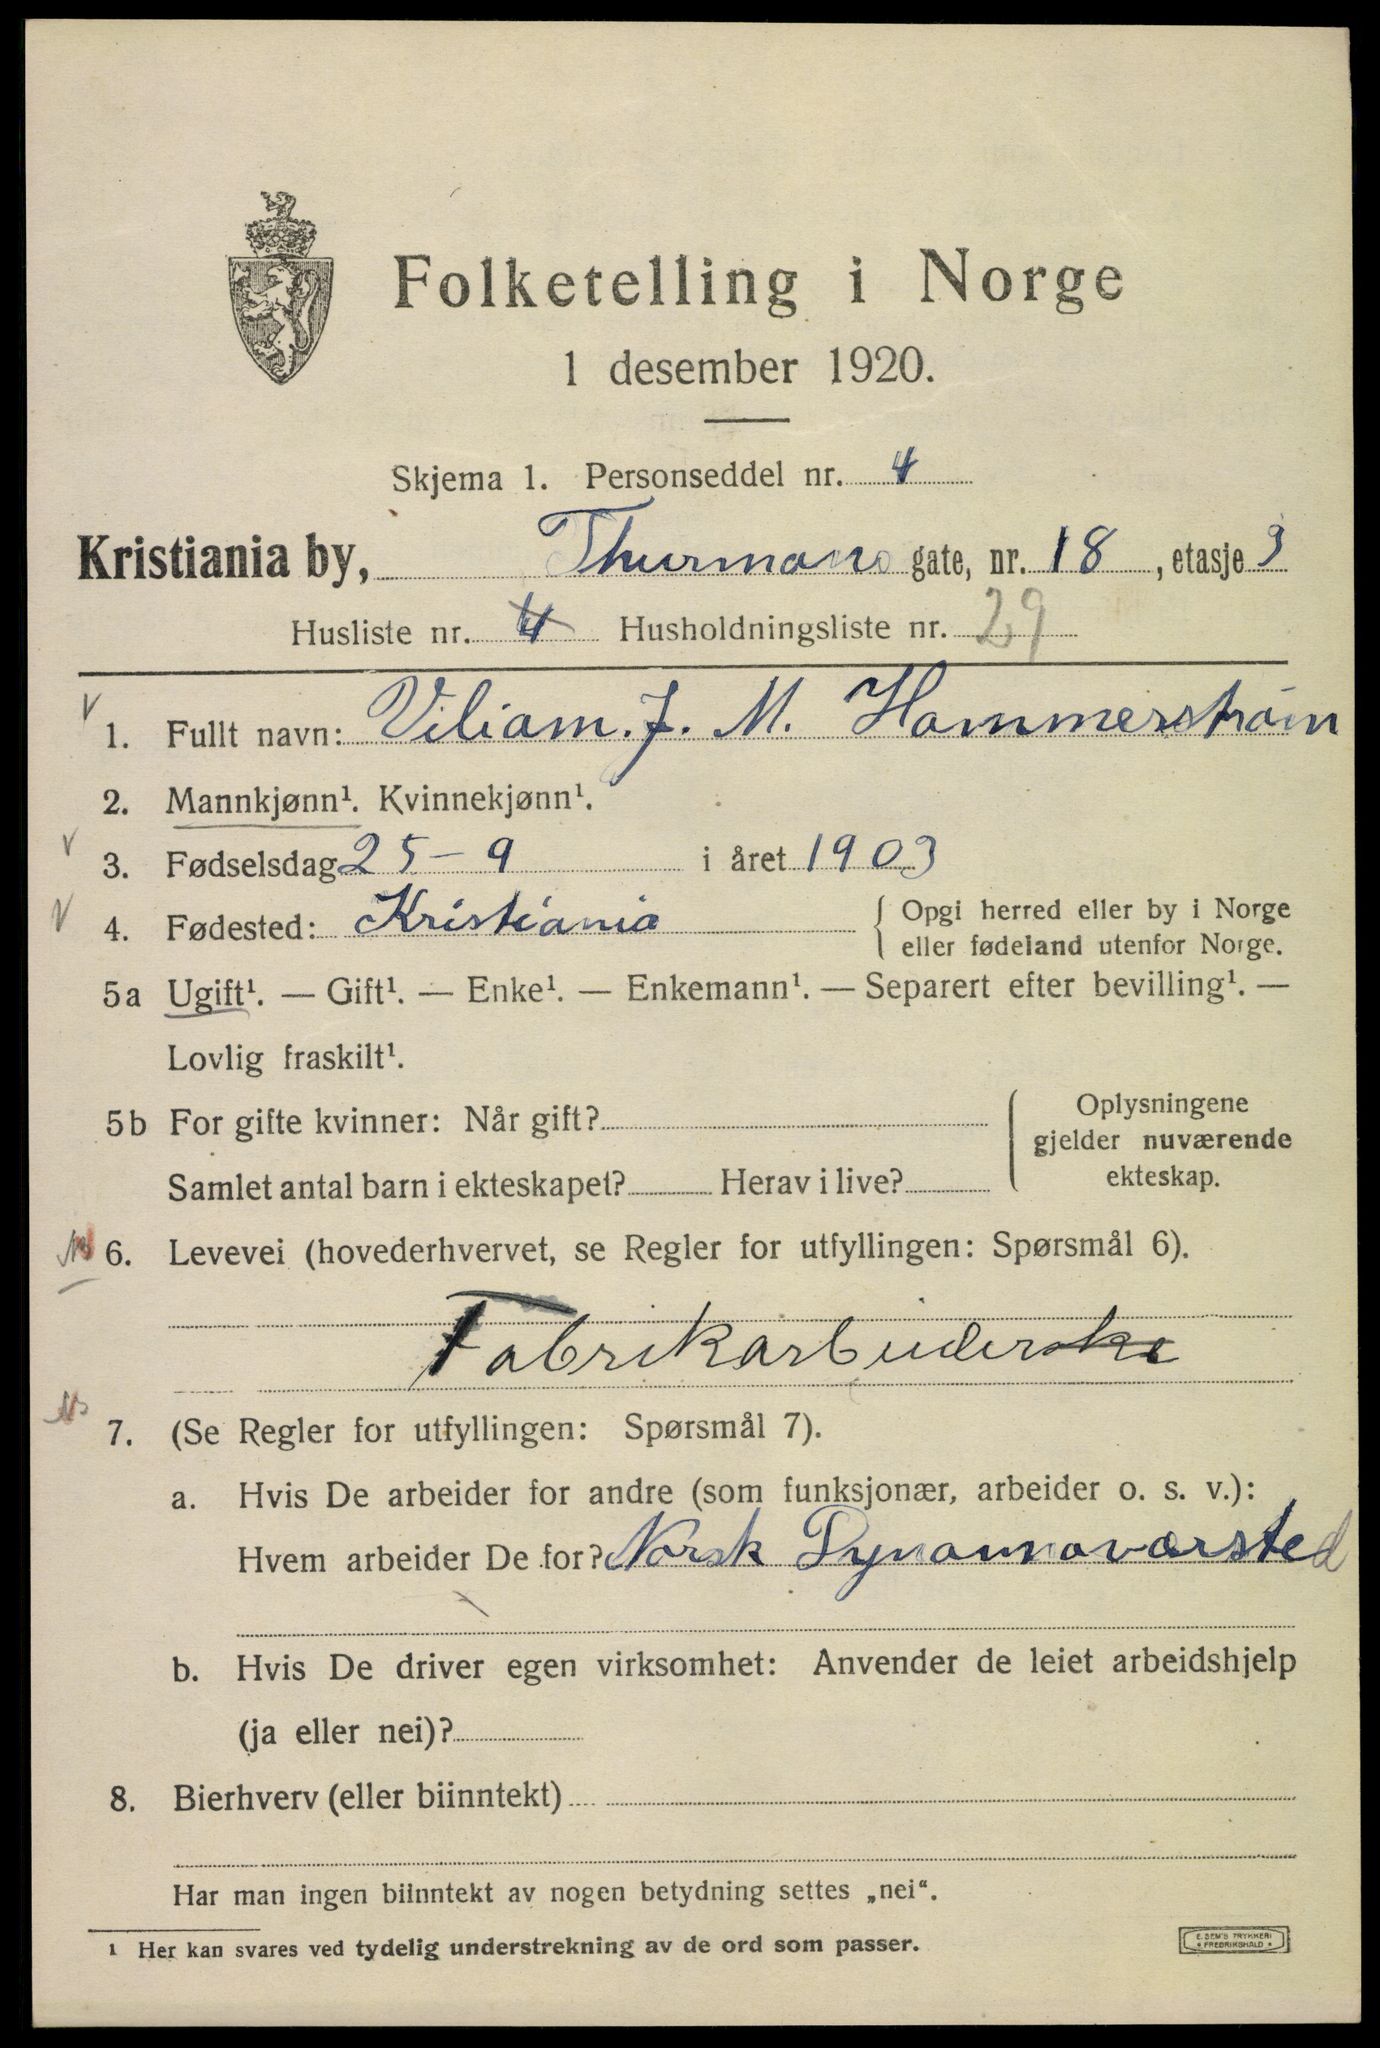 Folketelling i Norge
1 desember 1920.
Skjema 1. Personseddel nr. 4
Kristiania by, Thurmans gate, nr. 18, etasje 3
Husliste nr. 4 Husholdningsliste nr. 29
1. Fullt navn: Viliam. J. M. Hammerstrøm
2. Mannkjønn¹. Kvinnekjønn¹.
3. Fødselsdag 25-9 i året 1903
4. Fødested: Kristiania { Opgi herred eller by i Norge
eller fødeland utenfor Norge.
5a Ugift¹. — Gift¹. — Enke¹. — Enkemann¹. — Separert efter bevilling¹. —
Lovlig fraskilt¹.
5b For gifte kvinner: Når gift?
Samlet antal barn i ekteskapet? Herav i live?
Oplysningene
gjelder nuværende
ekteskap.
6. Levevei (hovederhvervet, se Regler for utfyllingen: Spørsmål 6).
Fabrikarbeiderske
7. (Se Regler for utfyllingen: Spørsmål 7).
a. Hvis De arbeider for andre (som funksjonær, arbeider o. s. v.):
Hvem arbeider De for? Norsk Dynamovarsted
b. Hvis De driver egen virksomhet: Anvender de leiet arbeidshjelp
(ja eller nei)?
8. Bierhverv (eller biinntekt)
Har man ingen biinntekt av nogen betydning settes „nei“.
¹ Her kan svares ved tydelig understrekning av de ord som passer.
E. SEM'S TRYKKERI
• FREDRIKSHALD •